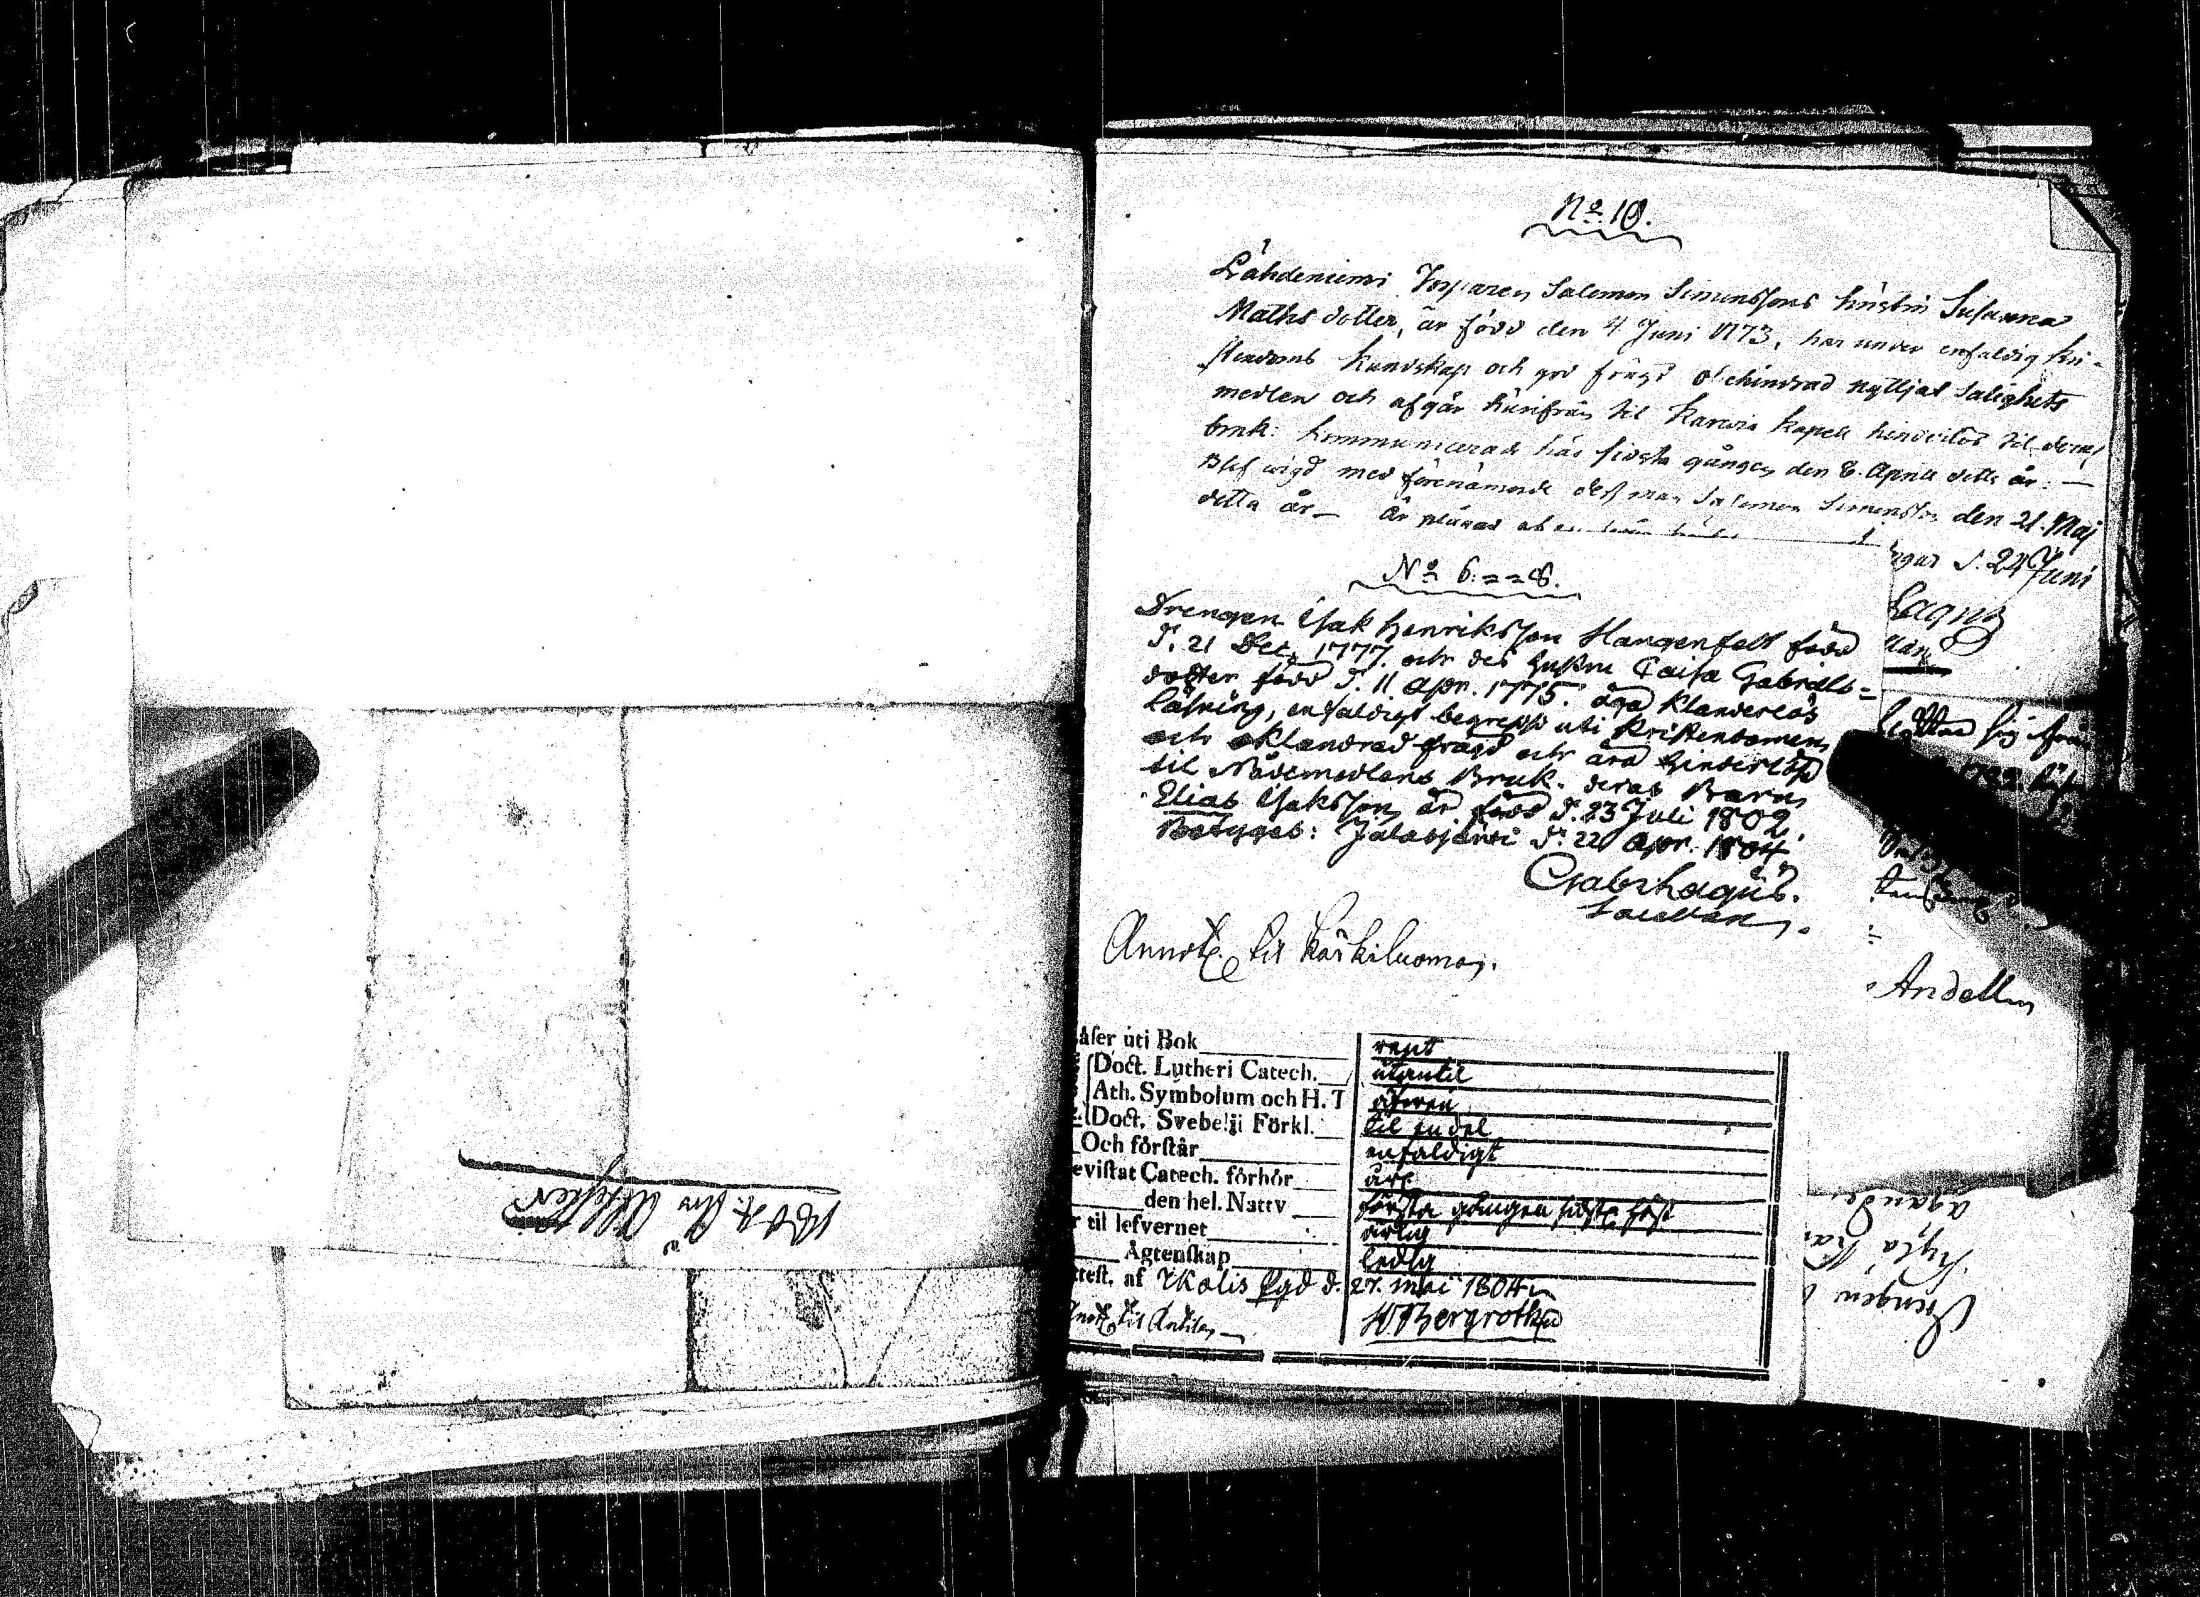 No 10.
Torparen Salomon Simonssons hustru Susanna
Maths dotter, är född den 4 Juni 1773, har under enfaldig kri-
stendoms kundskap och god frägd oklandrad nyttjat Salighets
medlen och afgår härifrån til kapell hinderlös til deras
bruk: kommunicerade här sidsta gången den 8. April detta år. —
Blef wigd med förenämnde dess man Salomon Simonsson den 21. Maj
detta år —
d. 24 Juni
No 6. = = 8.
Drengen Isak Henriksson Hangenfelt född
d. 21 Dec. 1777. och des hustru Caisa Gabriels=
dotter född d. 11 Apr. 1775. äga klanderlös
läsning, enfaldigt begrepp uti kristendomen,
och oklandrad frägd och äro hinderlöse
til Nådemedlens Bruk. deras Barn
Elias Isaksson är född d. 23 Juli 1802.
Betygas: Jalasjärvi d. 22 Apr. 1804.
Gabr. Hagús.
Sacellan.
Annot. til Koskiluoma.
Andell
åser uti Bok rent
Doct. Lutheri Catech. utantil
Ath. Symbolum och H. T äfwen
Doct. Svebelji Förkl. til en del
Och förstår enfaldigt
evistat Catech. förhör
den hel. Nattv första gången sidste höst
r til lefvernet ärlig
Ägtenskap ledig
ttest. af Ikalis Pgd d. 27. maj 1804
Annot. til Antila — Bergroth
1804. års Attester
Drengen